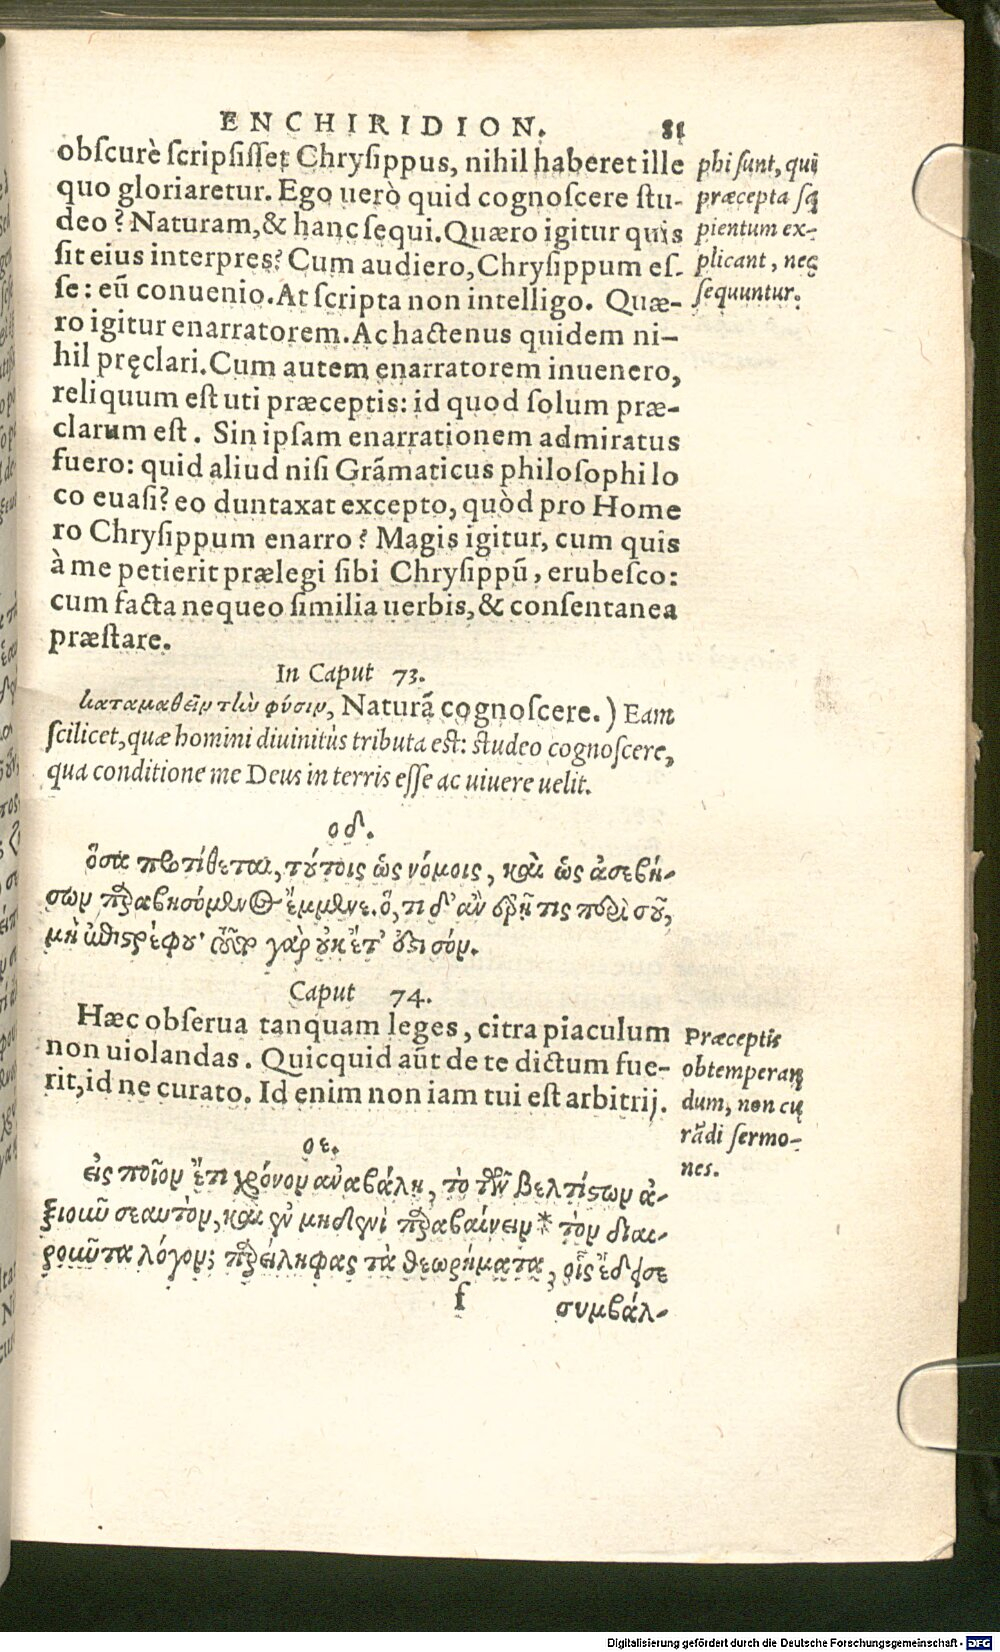 ENCHIRIDION. 81
obscurè scripsisset Chrysippus, nihil haberet ille
quo gloriaretur. Ego uerò quid cognoscere stu-
deo? Naturam, & hanc sequi. Quæro igitur quis
sit eius interpres? Cum audiero, Chrysippum es-
se: eũ conuenio. At scripta non intelligo. Quæ-
ro igitur enarratorem. Ac hactenus quidem ni-
hil pręclari. Cum autem enarratorem inuenero,
reliquum est uti præceptis: id quod solum præ-
clarum est. Sin ipsam enarrationem admiratus
fuero: quid aliud nisi Grãmaticus philosophi lo
co euasi? eo duntaxat excepto, quòd pro Home
ro Chrysippum enarro? Magis igitur, cum quis
à me petierit prælegi sibi Chrysippũ, erubesco:
cum facta nequeo similia uerbis, & consentanea
præstare.
phi sunt, qui
præcepta sa
pientum ex-
plicant, nec
sequuntur.
In Caput 73.
καταμαθεῖν τὴν φύσιν, Naturã cognoscere.) Eam
scilicet, quæ homini divinitùs tributa est: studeo cognoscere,
qua conditione me Deus in terris esse ac uiuere uelit.
οδ.
ὅσα προτίθεται, τούτοις ὡς νόμοις, καὶ ὡς ἀσεβή-
σων παραβησόμενος ἔμμενε. ὅ, τι δ' ἂν ἐρῇ τις περὶ σοῦ,
μὴ ἐπιστρέφου· τοῦτο γὰρ οὐκ ἔτ' ἐστὶ σόν.
Caput 74.
Hæc obserua tanquam leges, citra piaculum
non uiolandas. Quicquid aũt de te dictum fue-
rit, id ne curato. Id enim non iam tui est arbitrij.
Præceptis
obtemperan
dum, non cu
rãdi sermo-
nes.
οε.
εἰς ποῖον ἔτι χρόνον ἀναβάλῃ, τὸ τῶν βελτίστων ἀ-
ξιοῦν σεαυτὸν, καὶ ἐν μηδενὶ παραβαίνειν * τὸν διαι-
ροῦντα λόγον; παρείληφας τὰ θεωρήματα, οἷς ἔδει σε
f συμβάλ-
Digitalisierung gefördert durch die Deutsche Forschungsgemeinschaft - DFG